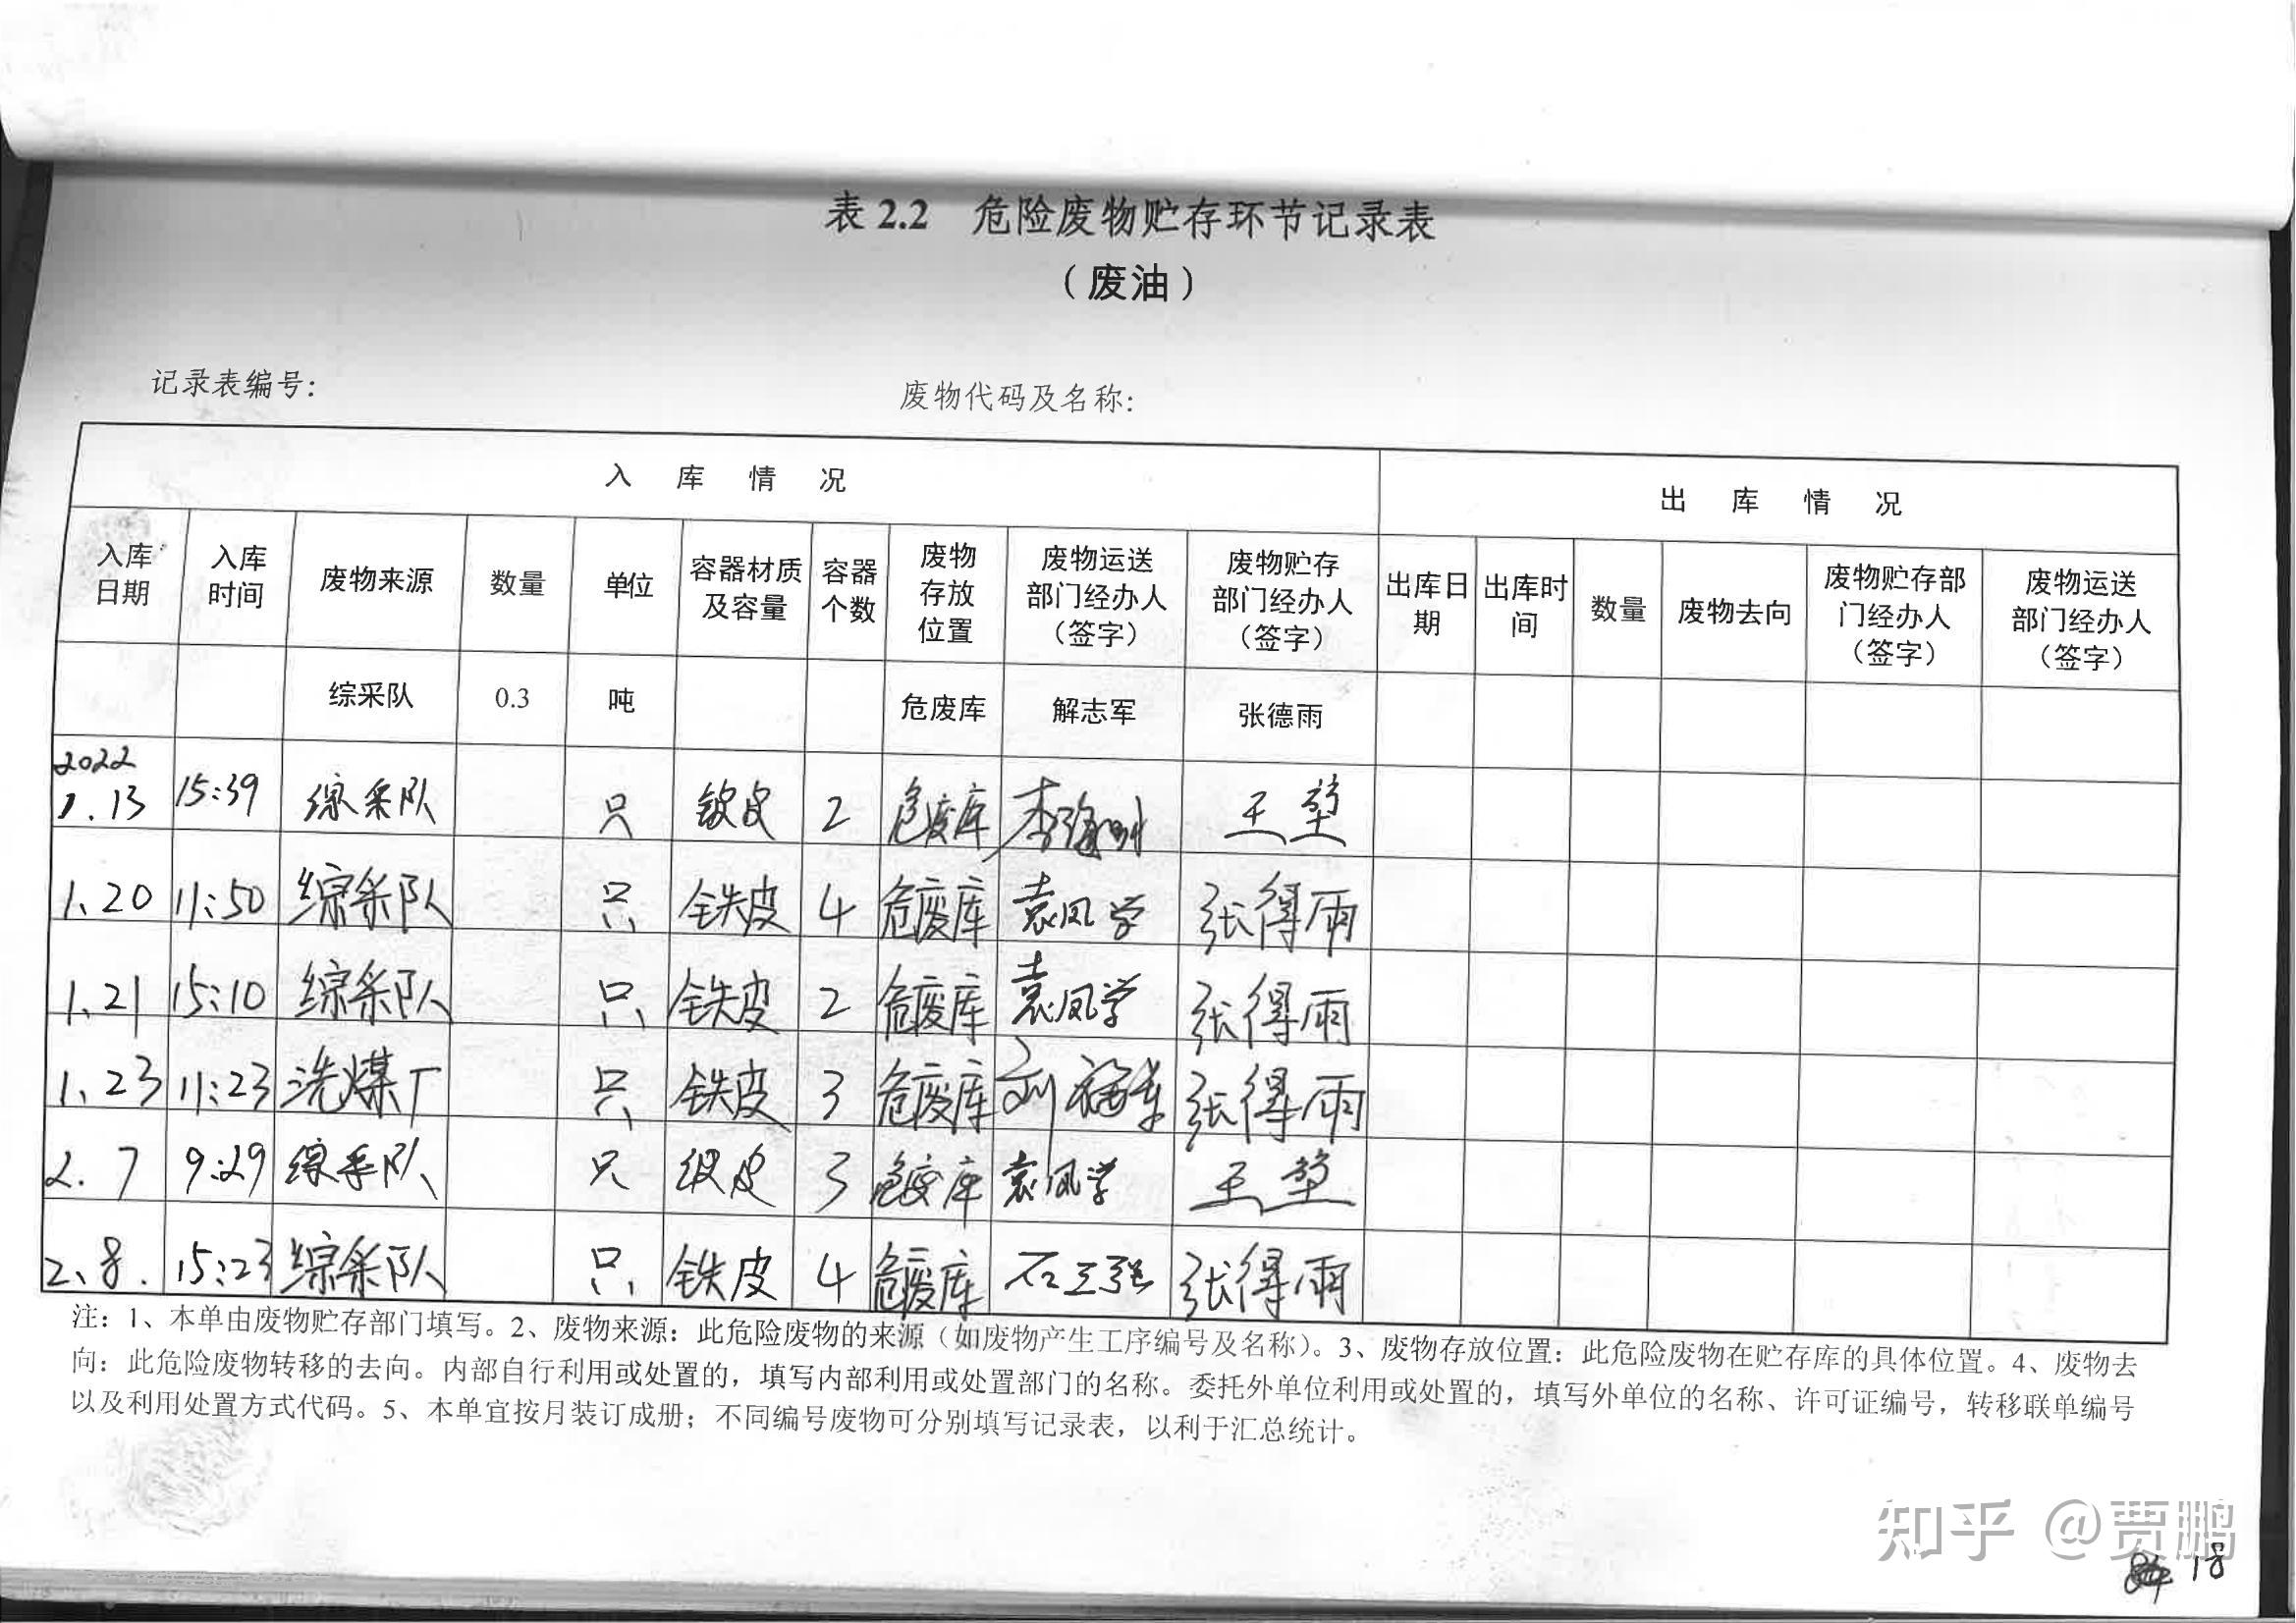 表 2.2 危险废物贮存环节记录表
（废油）
记录表编号： 废物代码及名称：
入 库 情 况 出 库 情 况
入库日期 入库时间 废物来源 数量 单位 容器材质及容量 容器个数 废物存放位置 废物运送部门经办人（签字） 废物贮存部门经办人（签字） 出库日期 出库时间 数量 废物去向 废物贮存部门经办人（签字） 废物运送部门经办人（签字）
综采队 0.3 吨 危废库 解志军 张德雨
2022
1.13 15:39 综采队 只 铁皮 2 危废库 王
1、20 11:50 综采队 只 铁皮 4 危废库 袁凤学 张得雨
1、21 15:10 综采队 只 铁皮 2 危废库 袁凤学 张得雨
1、23 11:23 洗煤厂 只 铁皮 3 危废库 刘 张得雨
2.7 9:29 综采队 只 铁皮 3 危废库 袁凤学 王
2、8. 15:23 综采队 只 铁皮 4 危废库 石 张得雨
注：1、本单由废物贮存部门填写。2、废物来源：此危险废物的来源（如废物产生工序编号及名称）。3、废物存放位置：此危险废物在贮存库的具体位置。4、废物去
向：此危险废物转移的去向。内部自行利用或处置的，填写内部利用或处置部门的名称。委托外单位利用或处置的，填写外单位的名称、许可证编号，转移联单编号
以及利用处置方式代码。5、本单宜按月装订成册；不同编号废物可分别填写记录表，以利于汇总统计。
知乎 @贾鹏
18